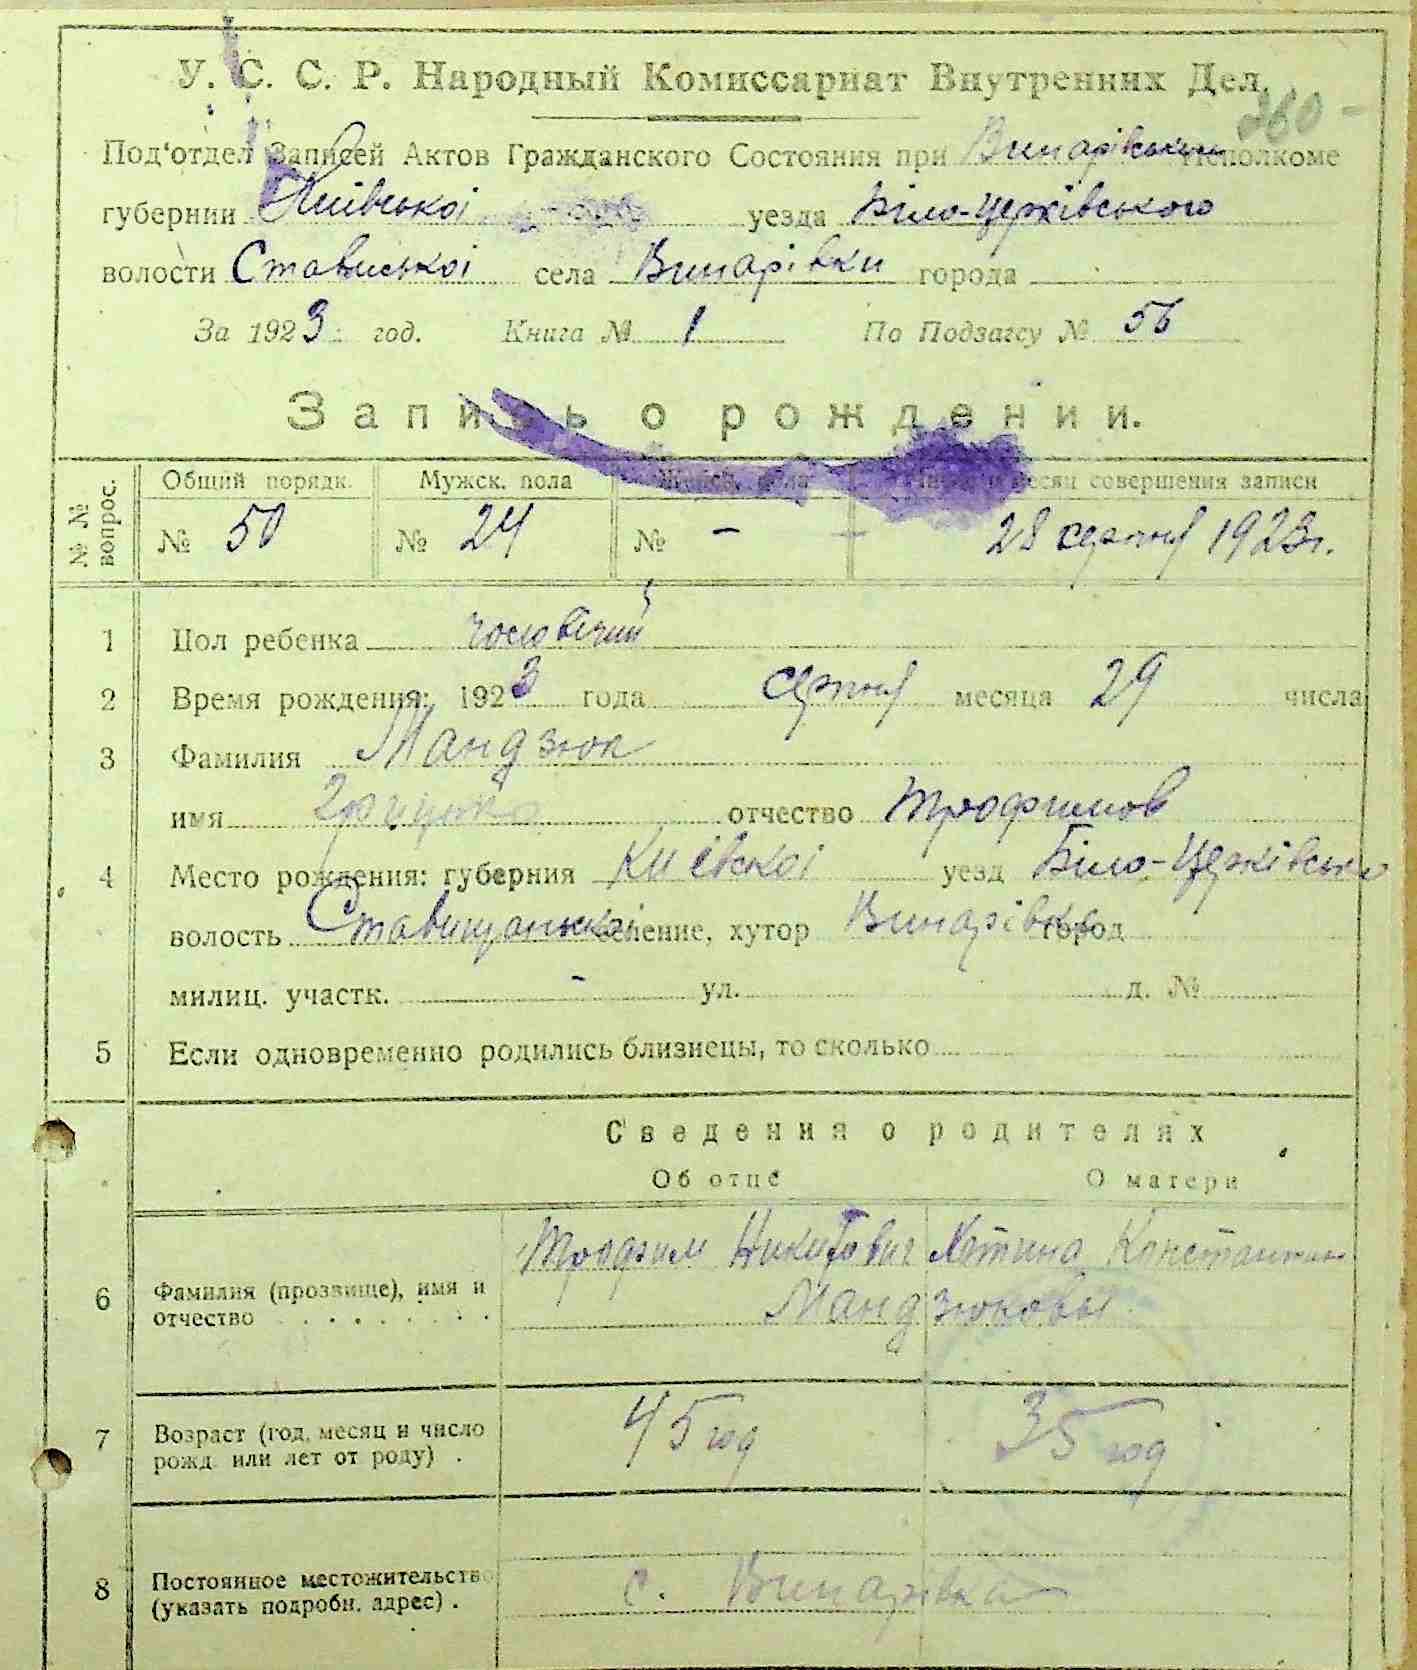 260 -
У. С. С. Р. Народный Комиссариат Внутренних Дел.
Под'отдел Записей Актов Гражданского Состояния при Винарівським Исполкоме
губернии Київськоі уезда Біло-Церківського
волости Стависькоі села Винарівки города
За 1923 год. Книга № 1 По Подзагсу № 56
Запись о рождении.
№ № вопрос. Общий порядк. Мужск. пола Женск. пола Число и месяц совершения записи
№ 50 № 24 № - - 28 серпня 1923 г.
1 Пол ребенка чоловічий
2 Время рождения: 1923 года серпня месяца 29 числа
3 Фамилия Мандзюк
имя Грицько отчество Трофимов
4 Место рождения: губерния Киівскоі уезд Біло-Церківськ
волость Ставищанськоі селение, хутор Винарівка город
милиц. участк. - ул. д. №
5 Если одновременно родились близнецы, то сколько
Сведения о родителях
Об отце О матери
6 Фамилия (прозвище), имя и отчество Трофим Никитович Хотина Константин
Мандзюковы
7 Возраст (год, месяц и число рожд. или лет от роду) . 45 год 35 год
8 Постоянное местожительство (указать подробн. адрес) . с. Винарівка